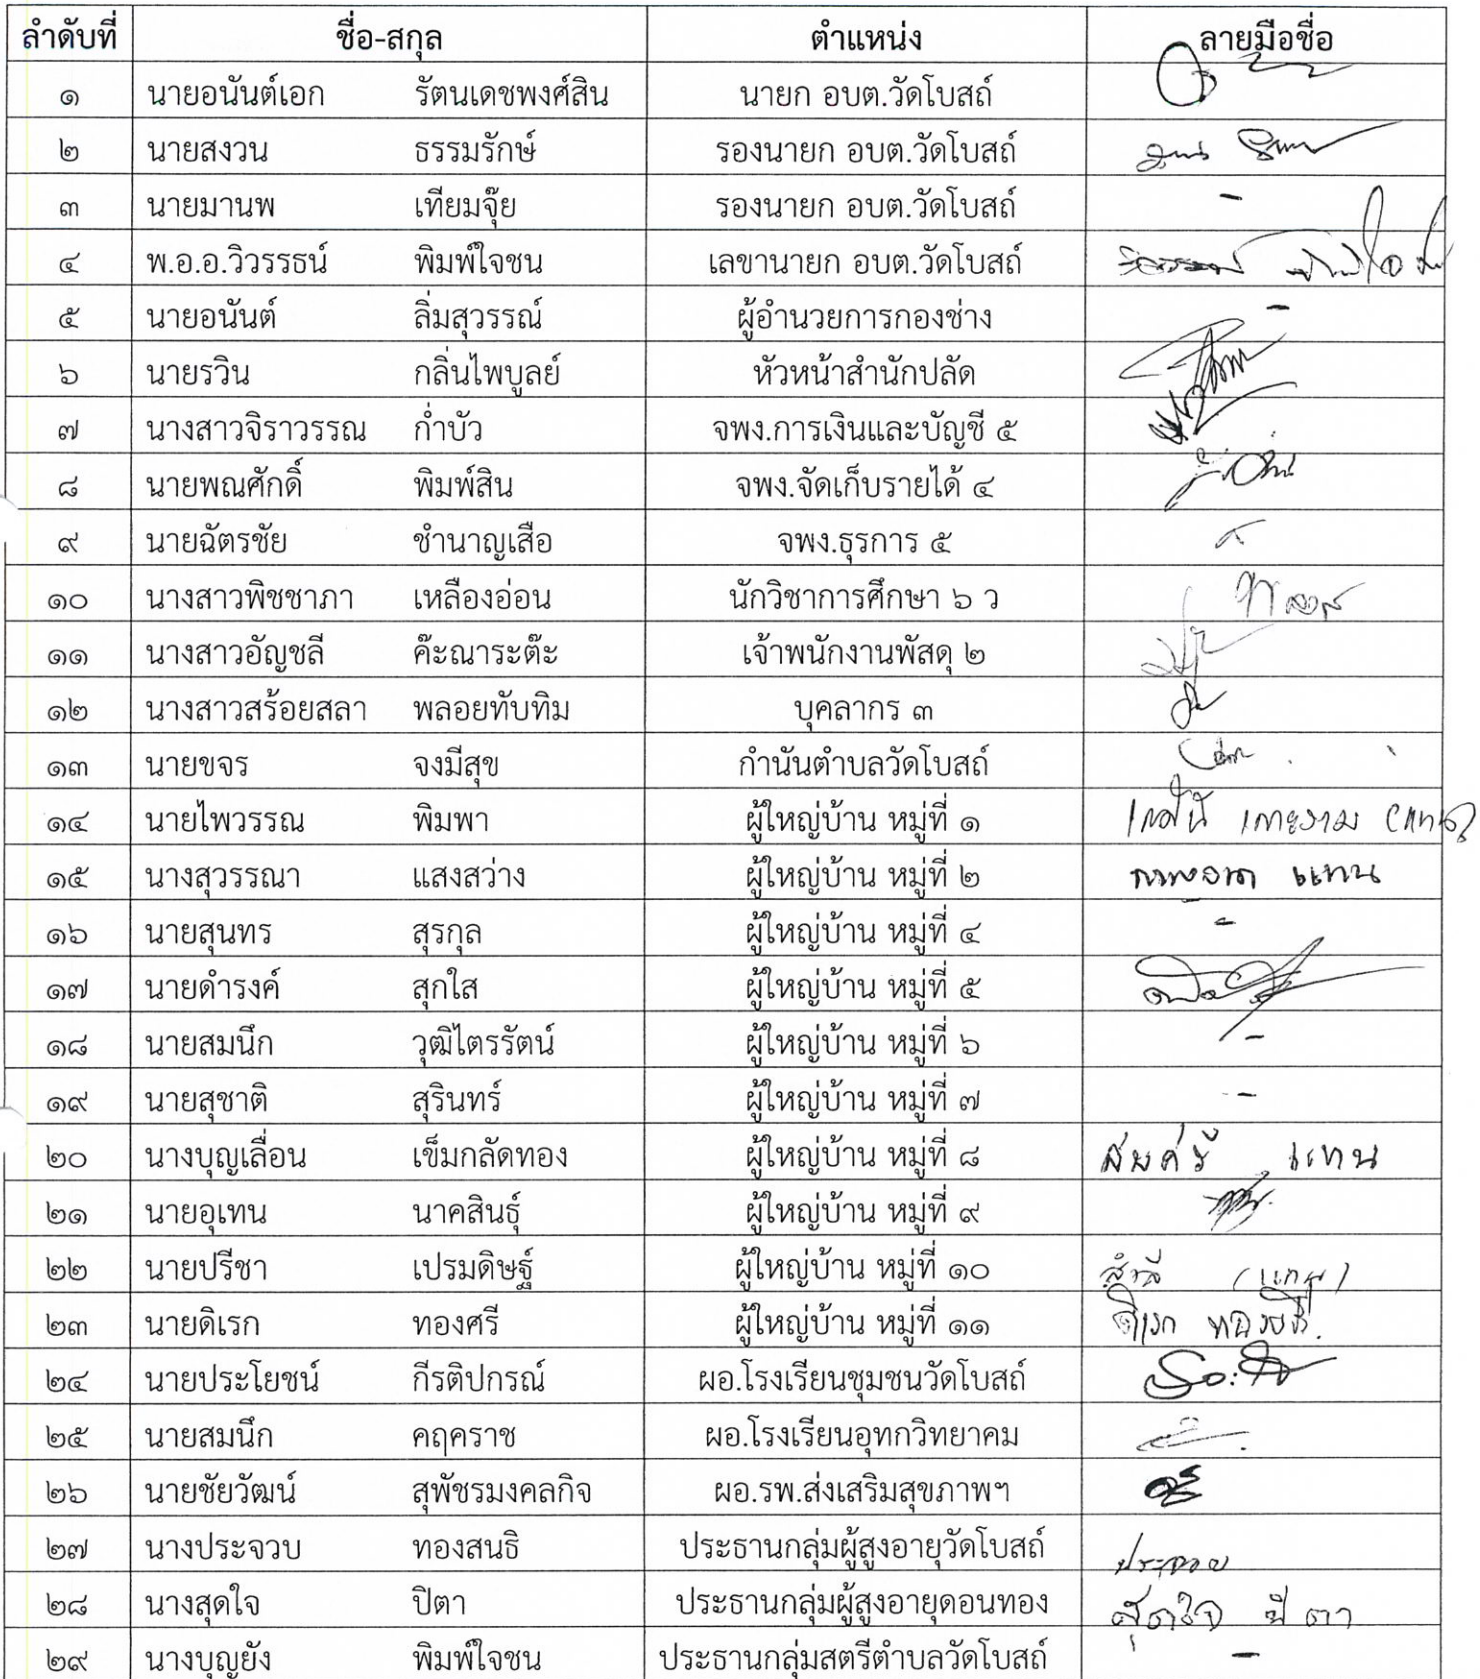 ลำดับที่ ชื่อ-สกุล ตำแหน่ง ลายมือชื่อ
๑ นายอนันต์เอก รัตนเดชพงศ์สิน นายก อบต.วัดโบสถ์
๒ นายสงวน ธรรมรักษ์ รองนายก อบต.วัดโบสถ์
๓ นายมานพ เทียมจุ๊ย รองนายก อบต.วัดโบสถ์ -
๔ พ.อ.อ.วิวรรธน์ พิมพ์ใจชน เลขานายก อบต.วัดโบสถ์
๕ นายอนันต์ ลิ่มสุวรรณ์ ผู้อำนวยการกองช่าง -
๖ นายรวิน กลิ่นไพบูลย์ หัวหน้าสำนักปลัด
๗ นางสาวจิราวรรณ ก่ำบัว จพง.การเงินและบัญชี ๕
๘ นายพณศักดิ์ พิมพ์สิน จพง.จัดเก็บรายได้ ๔
๙ นายฉัตรชัย ชำนาญเสือ จพง.ธุรการ ๕
๑๐ นางสาวพิชชาภา เหลืองอ่อน นักวิชาการศึกษา ๖ ว
๑๑ นางสาวอัญชลี ค๊ะณาระต๊ะ เจ้าพนักงานพัสดุ ๒
๑๒ นางสาวสร้อยสลา พลอยทับทิม บุคลากร ๓
๑๓ นายขจร จงมีสุข กำนันตำบลวัดโบสถ์
๑๔ นายไพวรรณ พิมพา ผู้ใหญ่บ้าน หมู่ที่ ๑
๑๕ นางสุวรรณา แสงสว่าง ผู้ใหญ่บ้าน หมู่ที่ ๒ แทน
๑๖ นายสุนทร สุรกุล ผู้ใหญ่บ้าน หมู่ที่ ๔ -
๑๗ นายดำรงค์ สุกใส ผู้ใหญ่บ้าน หมู่ที่ ๕
๑๘ นายสมนึก วุฒิไตรรัตน์ ผู้ใหญ่บ้าน หมู่ที่ ๖ -
๑๙ นายสุชาติ สุรินทร์ ผู้ใหญ่บ้าน หมู่ที่ ๗ -
๒๐ นางบุญเลื่อน เข็มกลัดทอง ผู้ใหญ่บ้าน หมู่ที่ ๘ แทน
๒๑ นายอุเทน นาคสินธุ์ ผู้ใหญ่บ้าน หมู่ที่ ๙
๒๒ นายปรีชา เปรมดิษฐ์ ผู้ใหญ่บ้าน หมู่ที่ ๑๐ (แทน)
๒๓ นายดิเรก ทองศรี ผู้ใหญ่บ้าน หมู่ที่ ๑๑ ดิเรก ทองศรี
๒๔ นายประโยชน์ กีรติปกรณ์ ผอ.โรงเรียนชุมชนวัดโบสถ์
๒๕ นายสมนึก คฤคราช ผอ.โรงเรียนอุทกวิทยาคม
๒๖ นายชัยวัฒน์ สุพัชรมงคลกิจ ผอ.รพ.ส่งเสริมสุขภาพฯ
๒๗ นางประจวบ ทองสนธิ ประธานกลุ่มผู้สูงอายุวัดโบสถ์ ประจวบ
๒๘ นางสุดใจ ปิตา ประธานกลุ่มผู้สูงอายุดอนทอง สุดใจ ปิตา
๒๙ นางบุญยัง พิมพ์ใจชน ประธานกลุ่มสตรีตำบลวัดโบสถ์ -